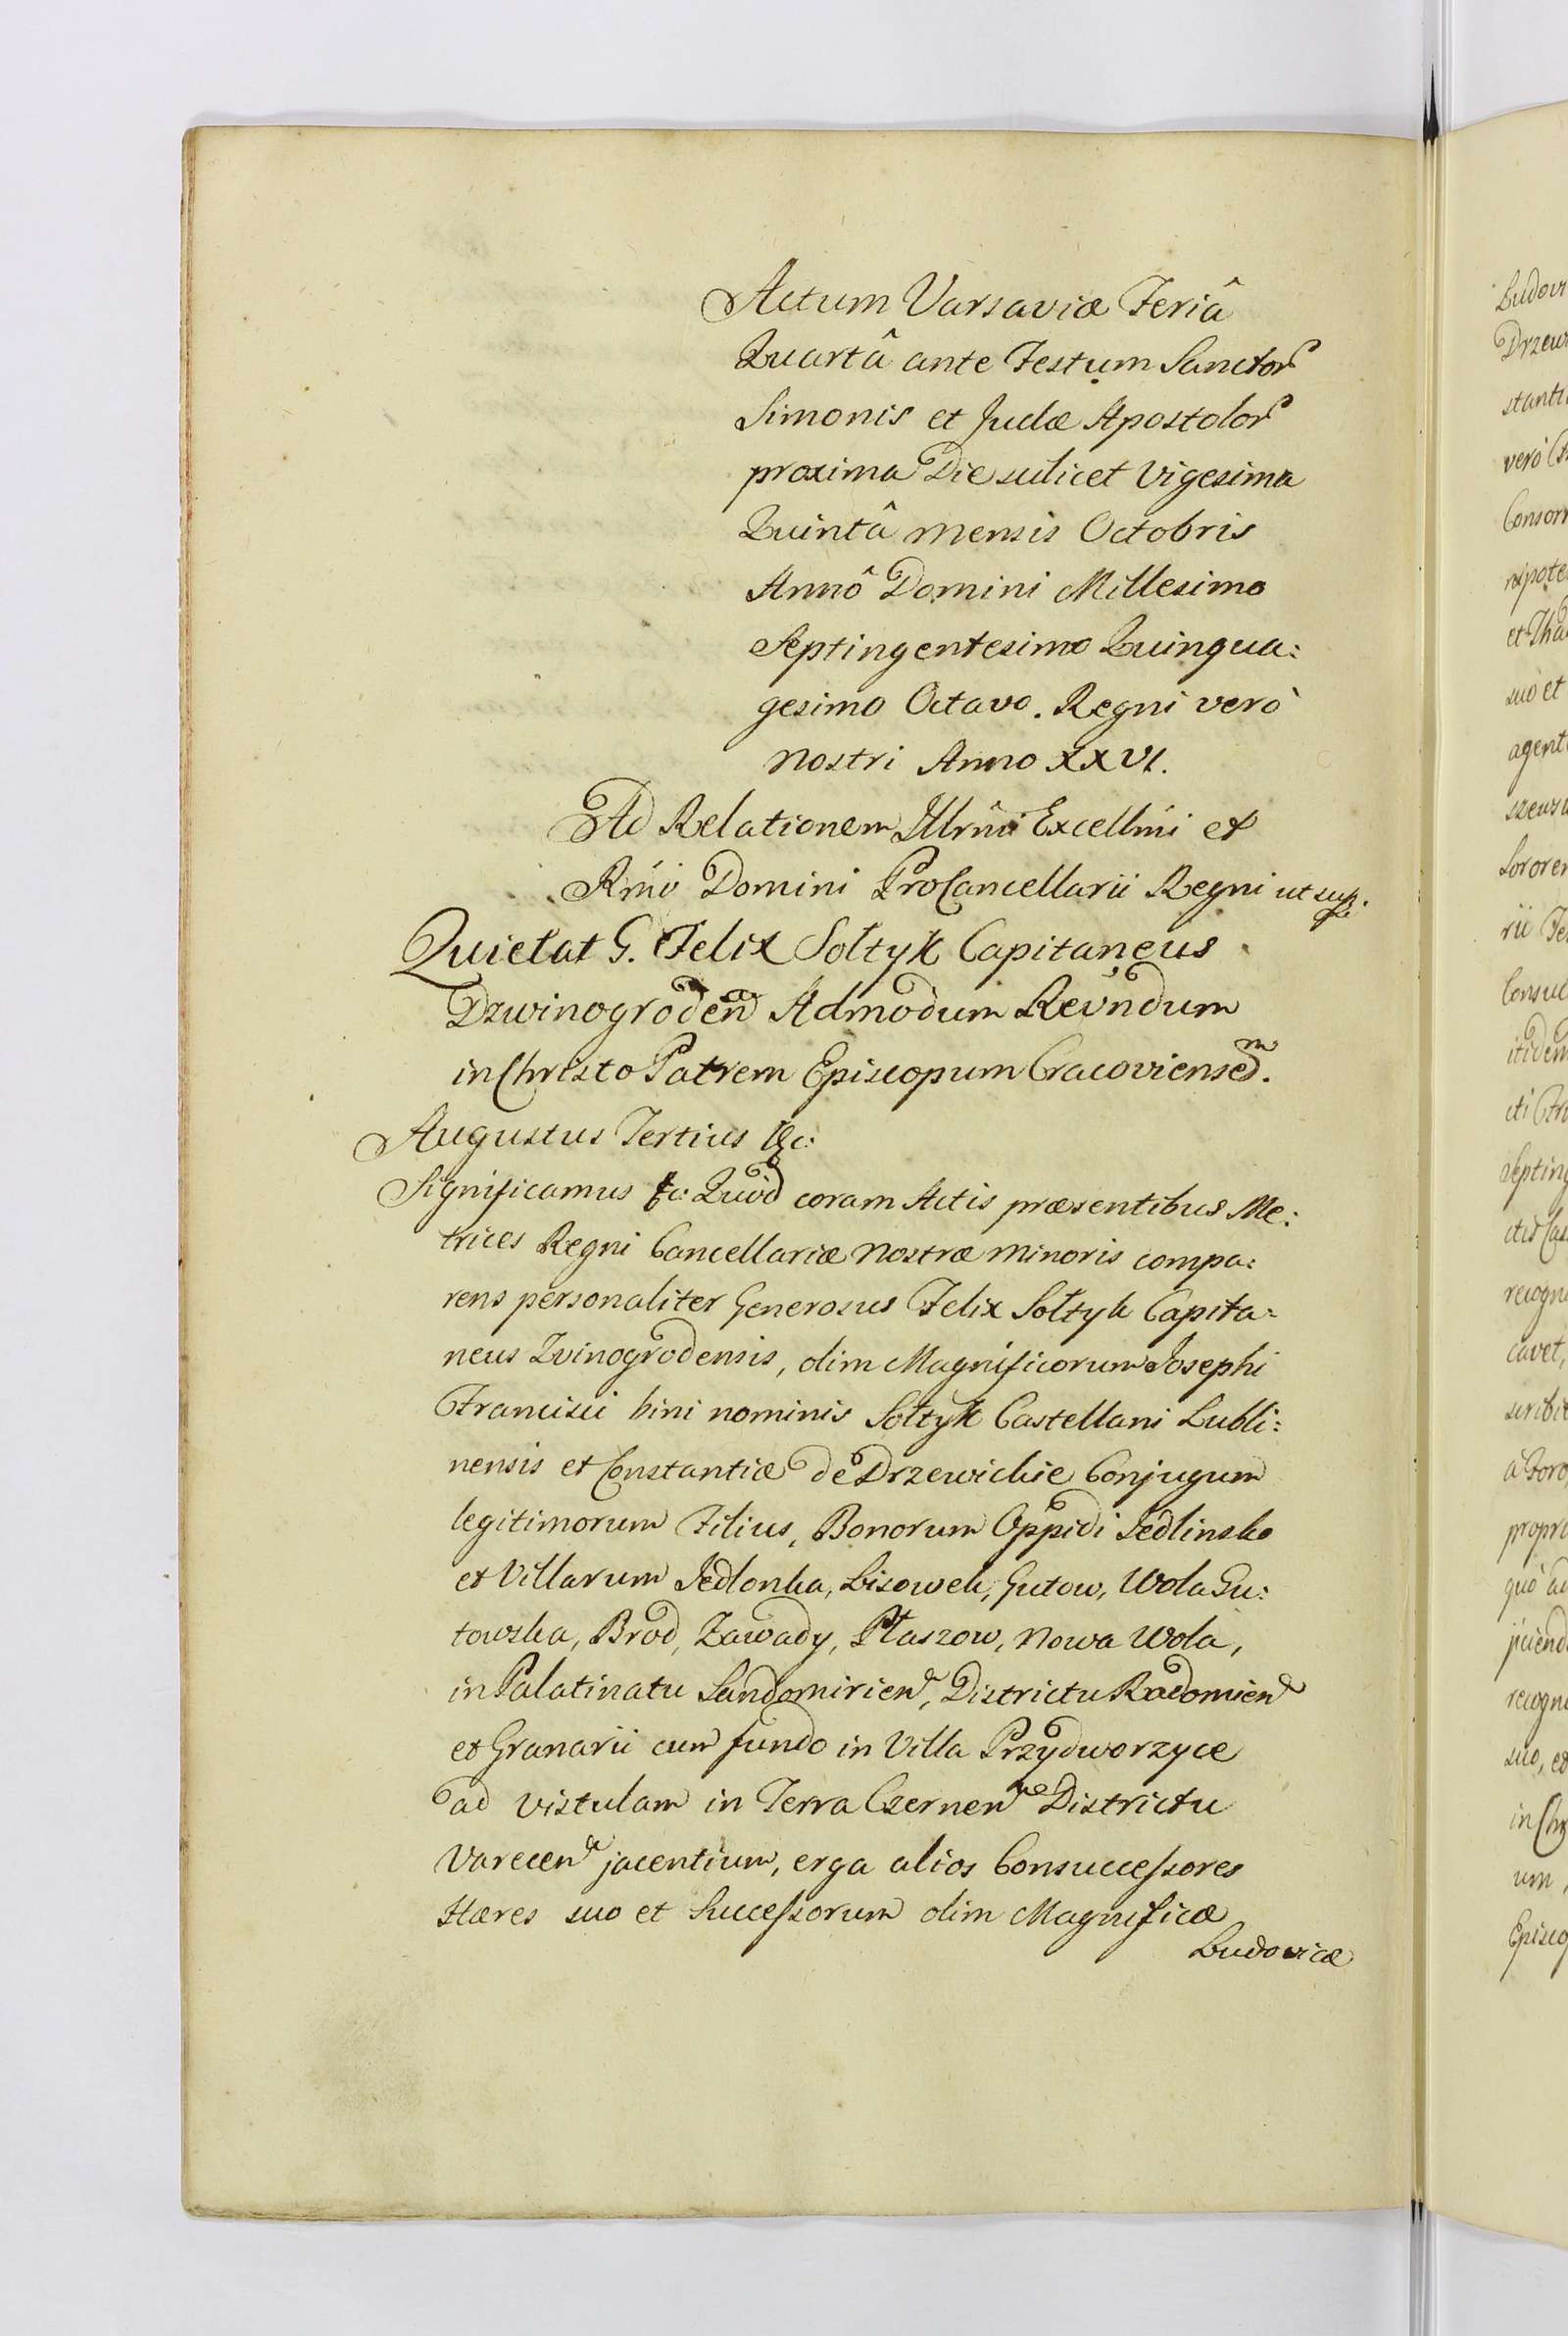 Actum Varsaviæ Feriâ
Quartâ ante Festum Sanctor
Simonis et Judæ Apostolor
proxima Die scilicet Vigesima
Quintâ mensis Octobris
Annô Domini Millesimo
Septingentesimo Quinqua:
gesimo Octavo. Regni verò
nostri Anno XXVI.
Ad Relationem Illrmi Excellmi et
Rmi Domini ProCancellarii Regni ut sup.
Quietat G. Felix Sołtyk Capitaneus
Dzwinogroden Admodum Reundum
in Christo Patrem Episcopum Cracoviensem.
Augustus Tertius &c:
Significamus &c: Quod coram Actis præsentibus Me:
trices Regni Cancellariæ nostræ minoris compa:
rens personaliter Generosus Felix Sołtyk Capita:
neus Zvinogrodensis, olim Magnificorum Josephi
Francisci bini nominis Sołtyk Castellani Lubli:
nensis et Constantiæ de Drzewickie Conjugum
legitimorum Filius, Bonorum Oppidi Jedlinsko
et Villarum Jedlonka, Lisowek, Gutow, Wola Gu:
towska, Brod, Zawady, Płaszow, Nowa Wola,
in Palatinatu Sandomirien, Districtu Radomien
et Granarii cum fundo in Villa Przydworzyce
ad Vistulam in Terra Czernen Districtu
Varecen jacentium, erga alios Consuccessores
Hæres suo et Successorum olim Magnificæ
Ludovicæ
Ludovi
Drzew
stanti
verò
Consor
et Tha
suo et
agent
Soror
rii
Consuc
itidem
Septing
recogn
cavet,
scribit
à
propri
quò
recogn
suo, et
in Chr
um
Episco